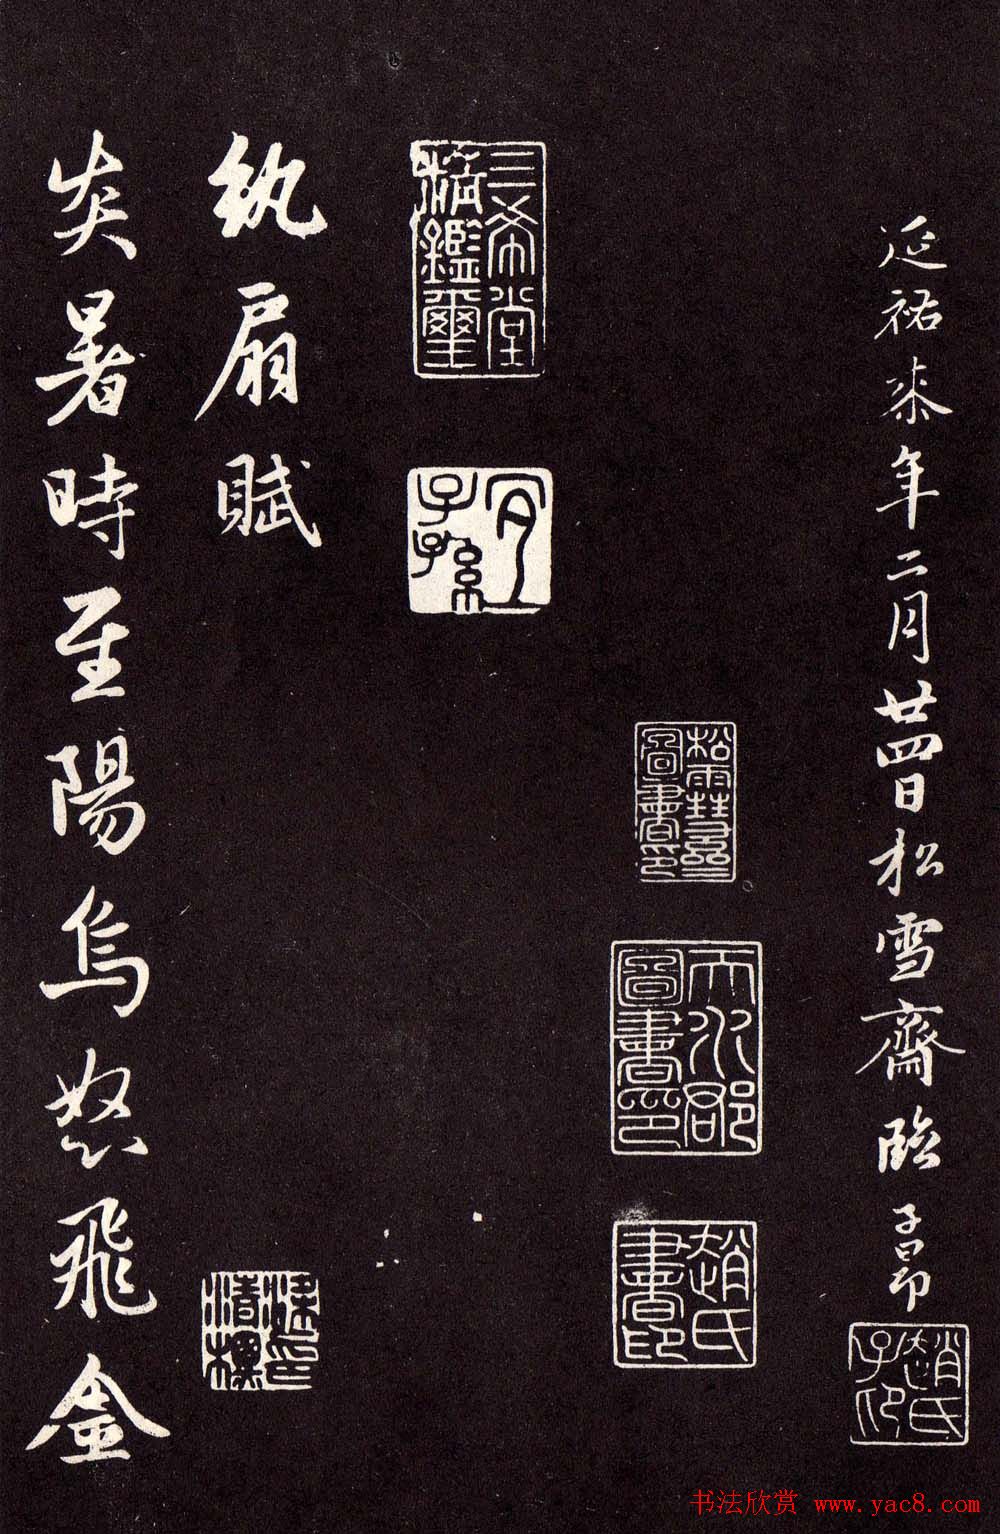 延祐桼年二月廿四日松雪齋臨 子昂
趙氏子昂
松雪齋圖書印
天水郡圖書印
趙氏書印
三希堂精鑑璽
宜子孫
紈扇賦
梁清標印
炎暑時至陽烏怒飛金
书法欣赏 www.yac8.com